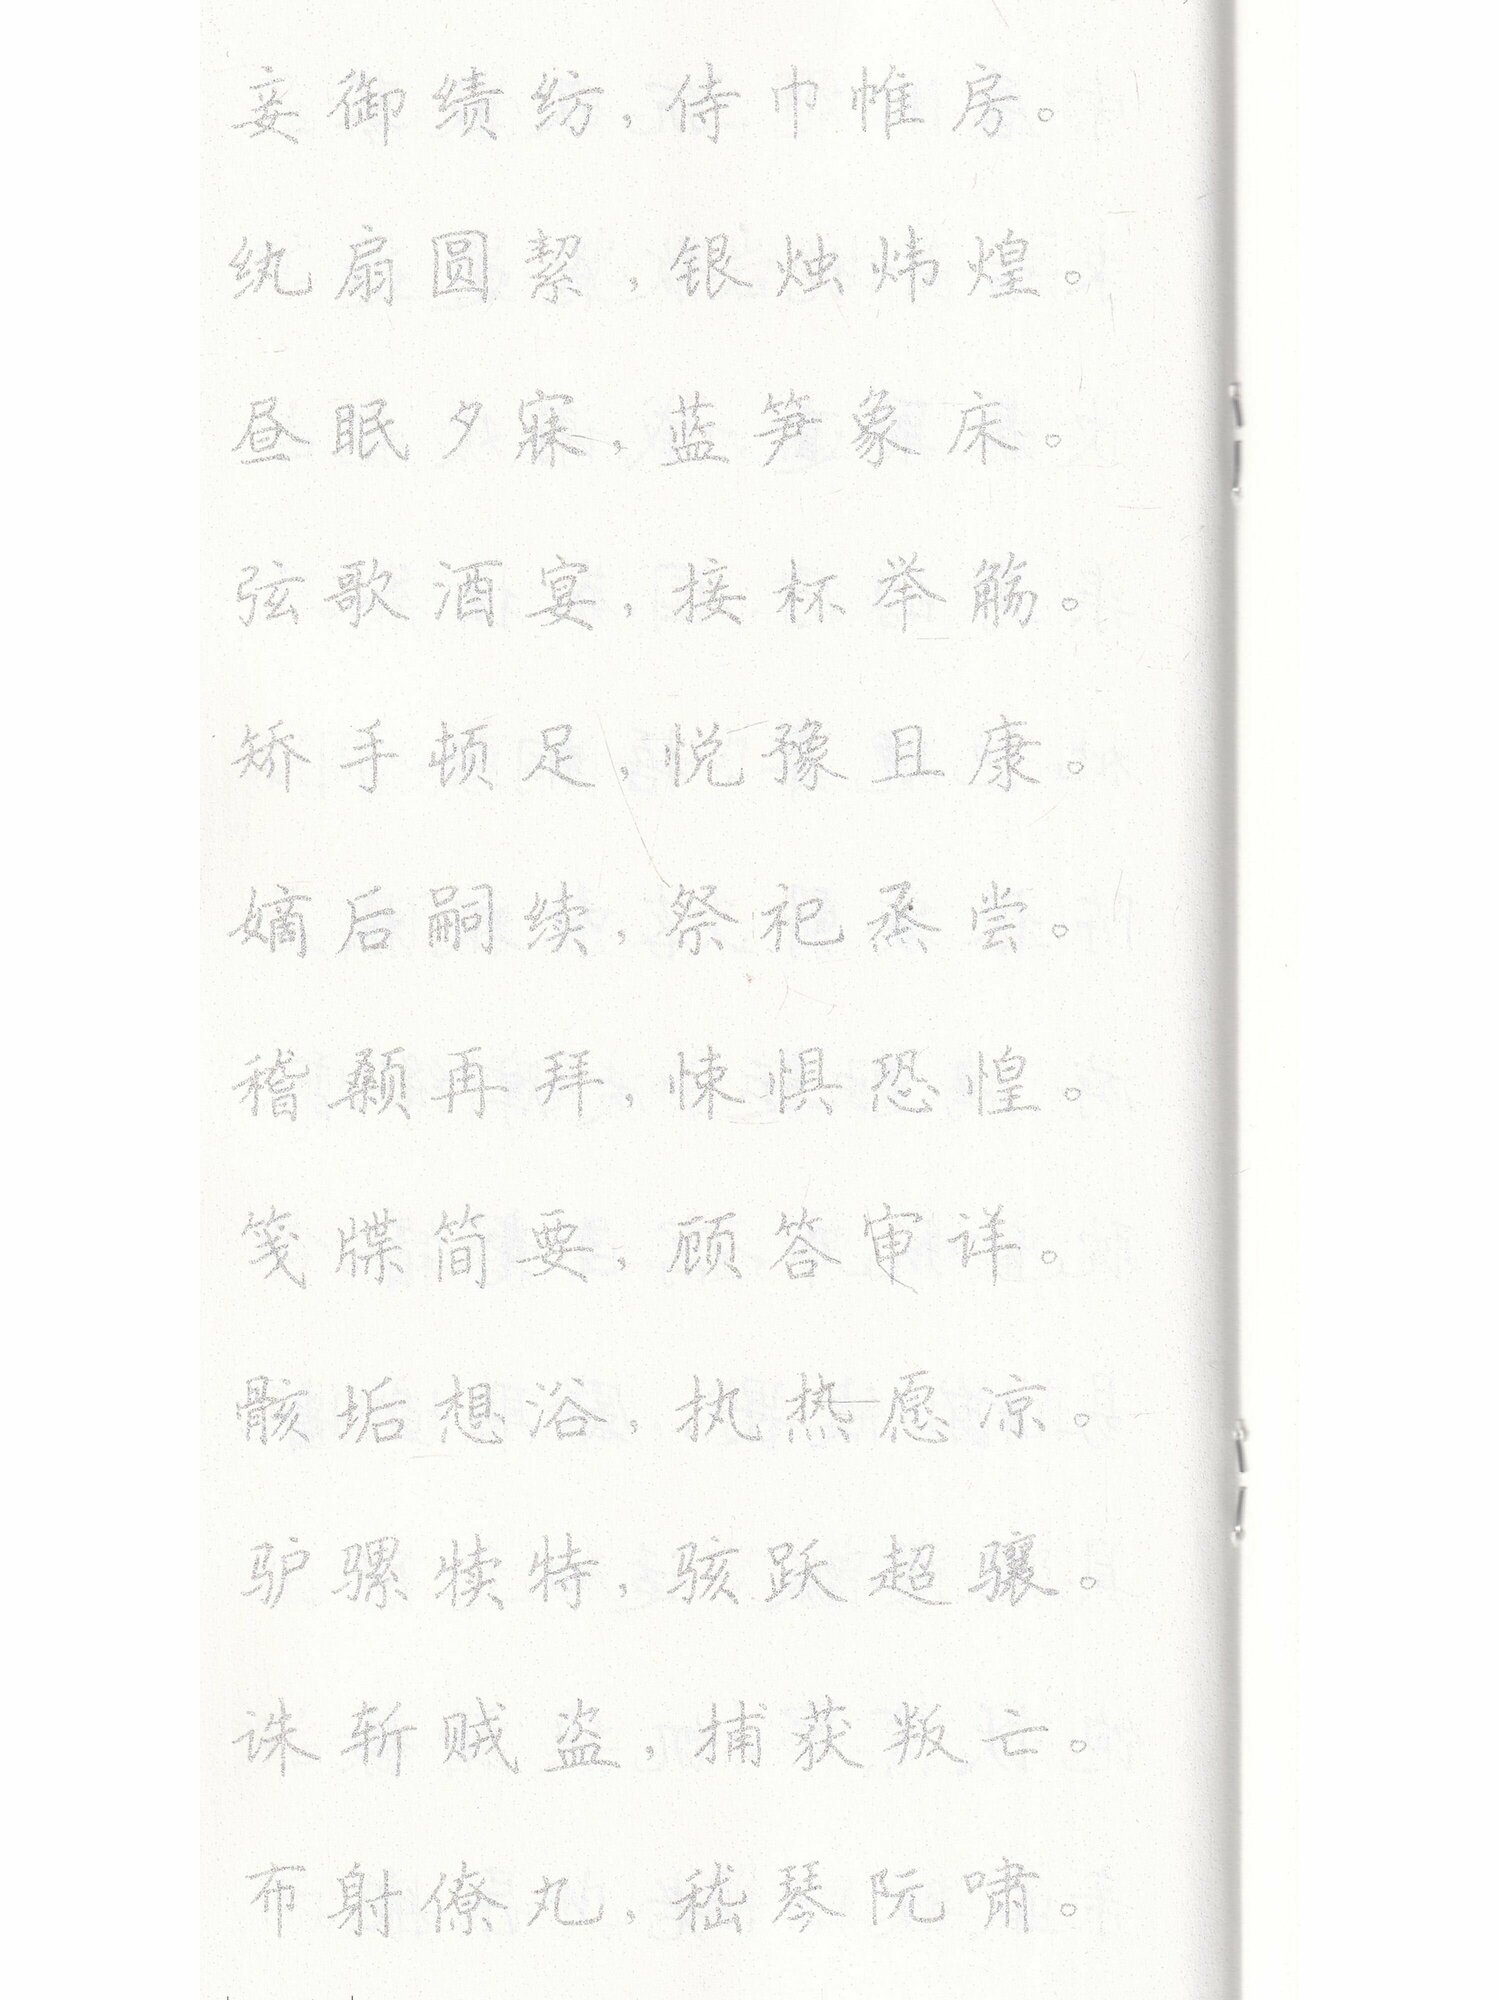 妾御绩纺，侍巾帷房。
纨扇圆絜，银烛炜煌。
昼眠夕寐，蓝笋象床。
弦歌酒宴，接杯举觞。
矫手顿足，悦豫且康。
嫡后嗣续，祭祀烝尝。
稽颡再拜，悚惧恐惶。
笺牒简要，顾答审详。
骸垢想浴，执热愿凉。
驴骡犊特，骇跃超骧。
诛斩贼盗，捕获叛亡。
布射僚丸，嵇琴阮啸。